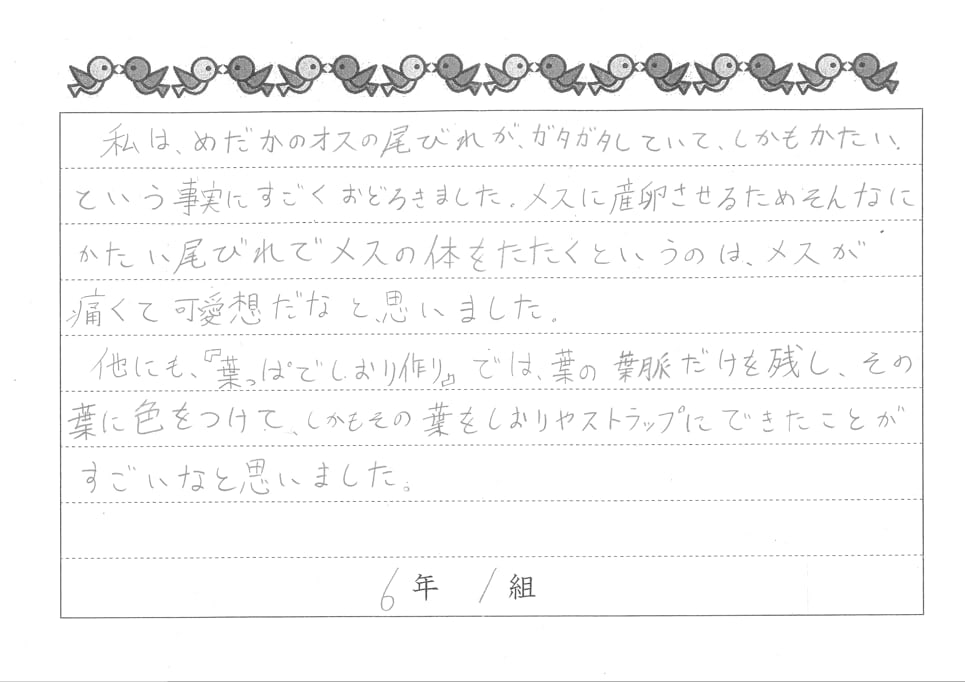 私は、めだかのオスの尾びれが、ガタガタしていて、しかもかたい、
という事実にすごくおどろきました。メスに産卵させるためそんなに
かたい尾びれでメスの体をたたくというのは、メスが
痛くて可愛想だなと、思いました。
他にも、『葉っぱでしおり作り』では、葉の葉脈だけを残し、その
葉に色をつけて、しかもその葉をしおりやストラップにできたことが
すごいなと思いました。
6年1組